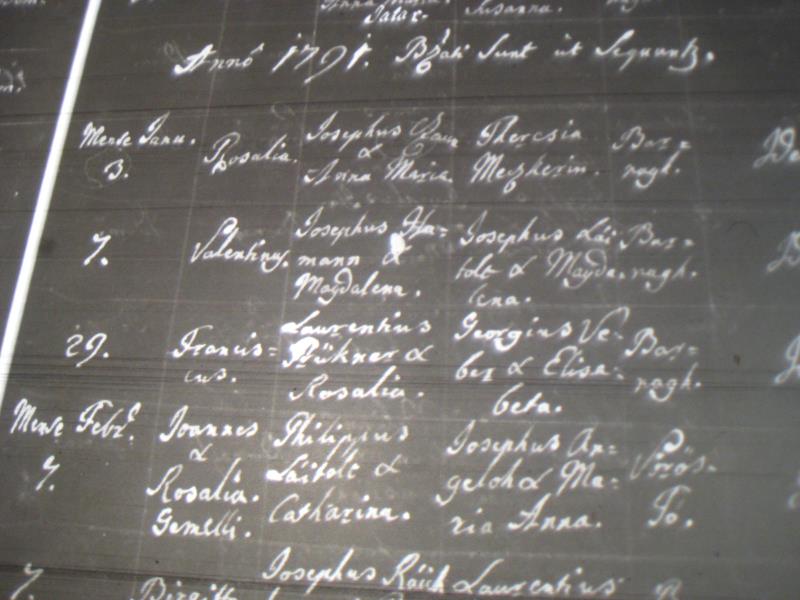 Susanna.
Annô 1791. Bzati Sunt ut Sequuntz.
Mense Janu.
3.
Rosalia.
Josephus
&
Anna Maria
Theresia
Mezherin.
Bar=
nagh.
7.
Valentinus.
Josephus Ha=
mann &
Magdalena.
Josephus Lái
tolt & Magda.
lena.
Bar=
nagh.
29.
Francis=
cus.
Laurentius
&
Rosalia.
Georgius Ve=
ber & Elisa=
beta.
Bar=
nagh.
Mense Febr.
7.
Joannes
&
Rosalia.
Gemelli.
Philippus
Láitolt &
Catharina.
Josephus An=
geloh & Ma=
ria Anna.
Vörös=
Tó.
7.
Josephus
Laurentius